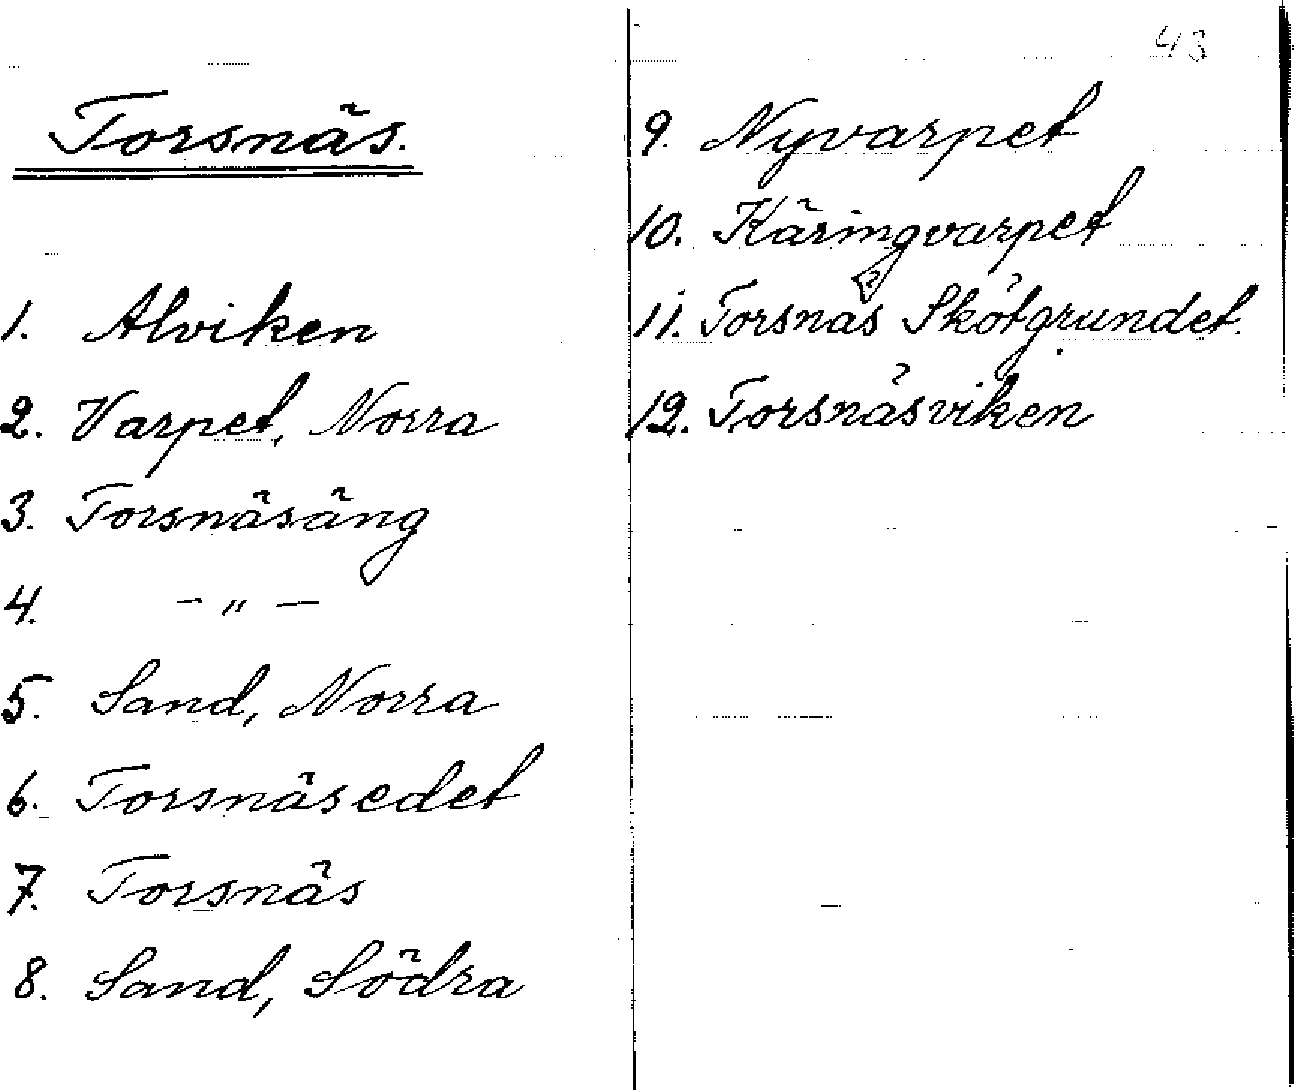 43
Torsnäs.
1. Alviken
2. Varpet, Norra
3. Torsnäsäng
4. - " -
5. Sand, Norra
6. Torsnäsedet
7. Torsnäs
8. Sand, Södra
9. Nyvarpet
10. Käringvarpet
11. Torsnäs Skötgrundet.
12. Torsnäsviken